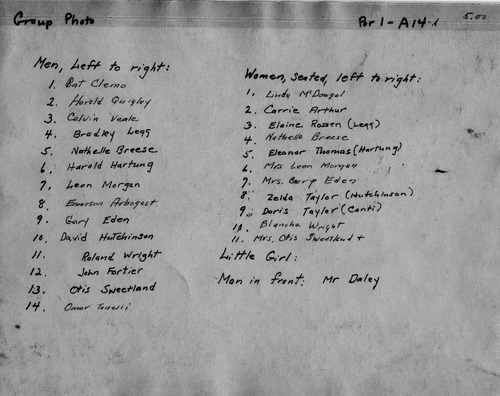 Group Photo
Br 1-A14-1
5.00
Men, Left to right:
1. Bat Clemo
2. Harold Quigley
3. Calvin Veale
4. Bradley Legg
5. Nathelle Breese
6. Harold Hartung
7. Leon Morgan
8. Emerson Arbogast
9. Gary Eden
10. David Hutchinson
11. Roland Wright
12. John Fortier
13. Otis Sweetland
14. Omar
Women, seated, left to right:
1. Linda McDougal
2. Carrie Arthur
3. Elaine Rossen (Legg)
4. Nathelle Breese
5. Eleanor Thomas (Hartung)
6. Mrs Leon Morgan
7. Mrs. Gary Eden
8. Zelda Taylor (Hutchinson)
9. Doris Taylor (Conti)
10. Blanche Wright
11. Mrs. Otis Sweetland +
Little Girl:
Man in front: Mr Daley